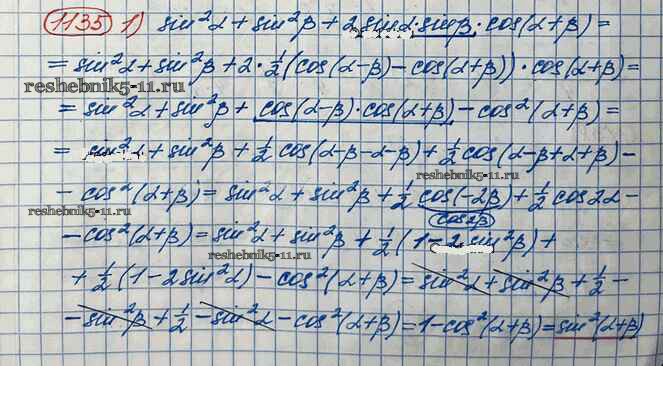 1135 1) sin²α + sin²β + 2 sinα·sinβ·cos(α+β) =
= sin²α + sin²β + 2·½(cos(α-β) - cos(α+β))·cos(α+β) =
reshebnik5-11.ru
= sin²α + sin²β + cos(α-β)·cos(α+β) - cos²(α+β) =
= sin²α + sin²β + ½ cos(α-β-α-β) + ½ cos(α-β+α+β) -
reshebnik5-11.ru
- cos²(α+β) = sin²α + sin²β + ½ cos(-2β) + ½ cos2α -
reshebnik5-11.ru
cos2β
- cos²(α+β) = sin²α + sin²β + ½(1-2sin²β) +
reshebnik5-11.ru
+ ½(1-2sin²α) - cos²(α+β) = sin²α + sin²β + ½ -
- sin²β + ½ - sin²α - cos²(α+β) = 1 - cos²(α+β) = sin²(α+β)